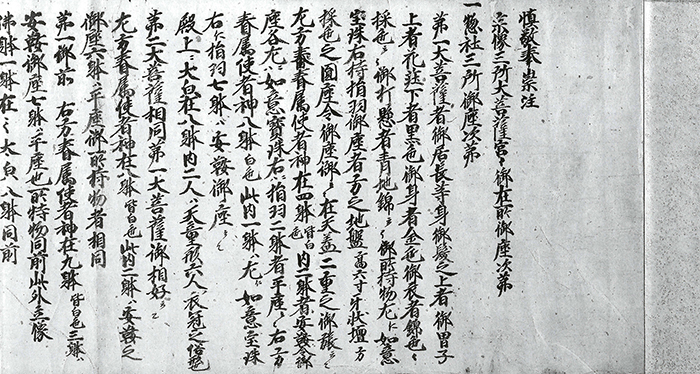 慎敬奉崇注
宗像三所大菩薩宮々御在所御座次第
一惣社三所御座次第
第一大菩薩者御居長等身御髪之上者御冒子
上者花弦下者黒也御身者金色御衣者錦也々
採色々御打懸者青地錦々御所持物左仁如意
宝珠右持指羽御座者方之地盤高六寸牙状壇方
採色之圓座令御座御々在天蓋二重之御張々
左方眷属使者神在四躰皆白色内二躰者安
座各左如意寶珠右指羽二躰者平座々右方
眷属使者神八躰白色此内一躰左仁如意宝珠
右仁指羽七躰安鞍御座々
殿上大臣在八躰内二人天童形六人衣冠之俗也
第二大菩薩相同第一大菩薩御相好
左方眷属使者神在八躰皆白色此内二躰安鞍之
御座六躰平座御所持物者相同
第一御前右方眷属使者神在九躰皆白色三躰
安鞍御座七躰平座也所持物同前此外立像
佛躰一躰在々大臣八躰同前